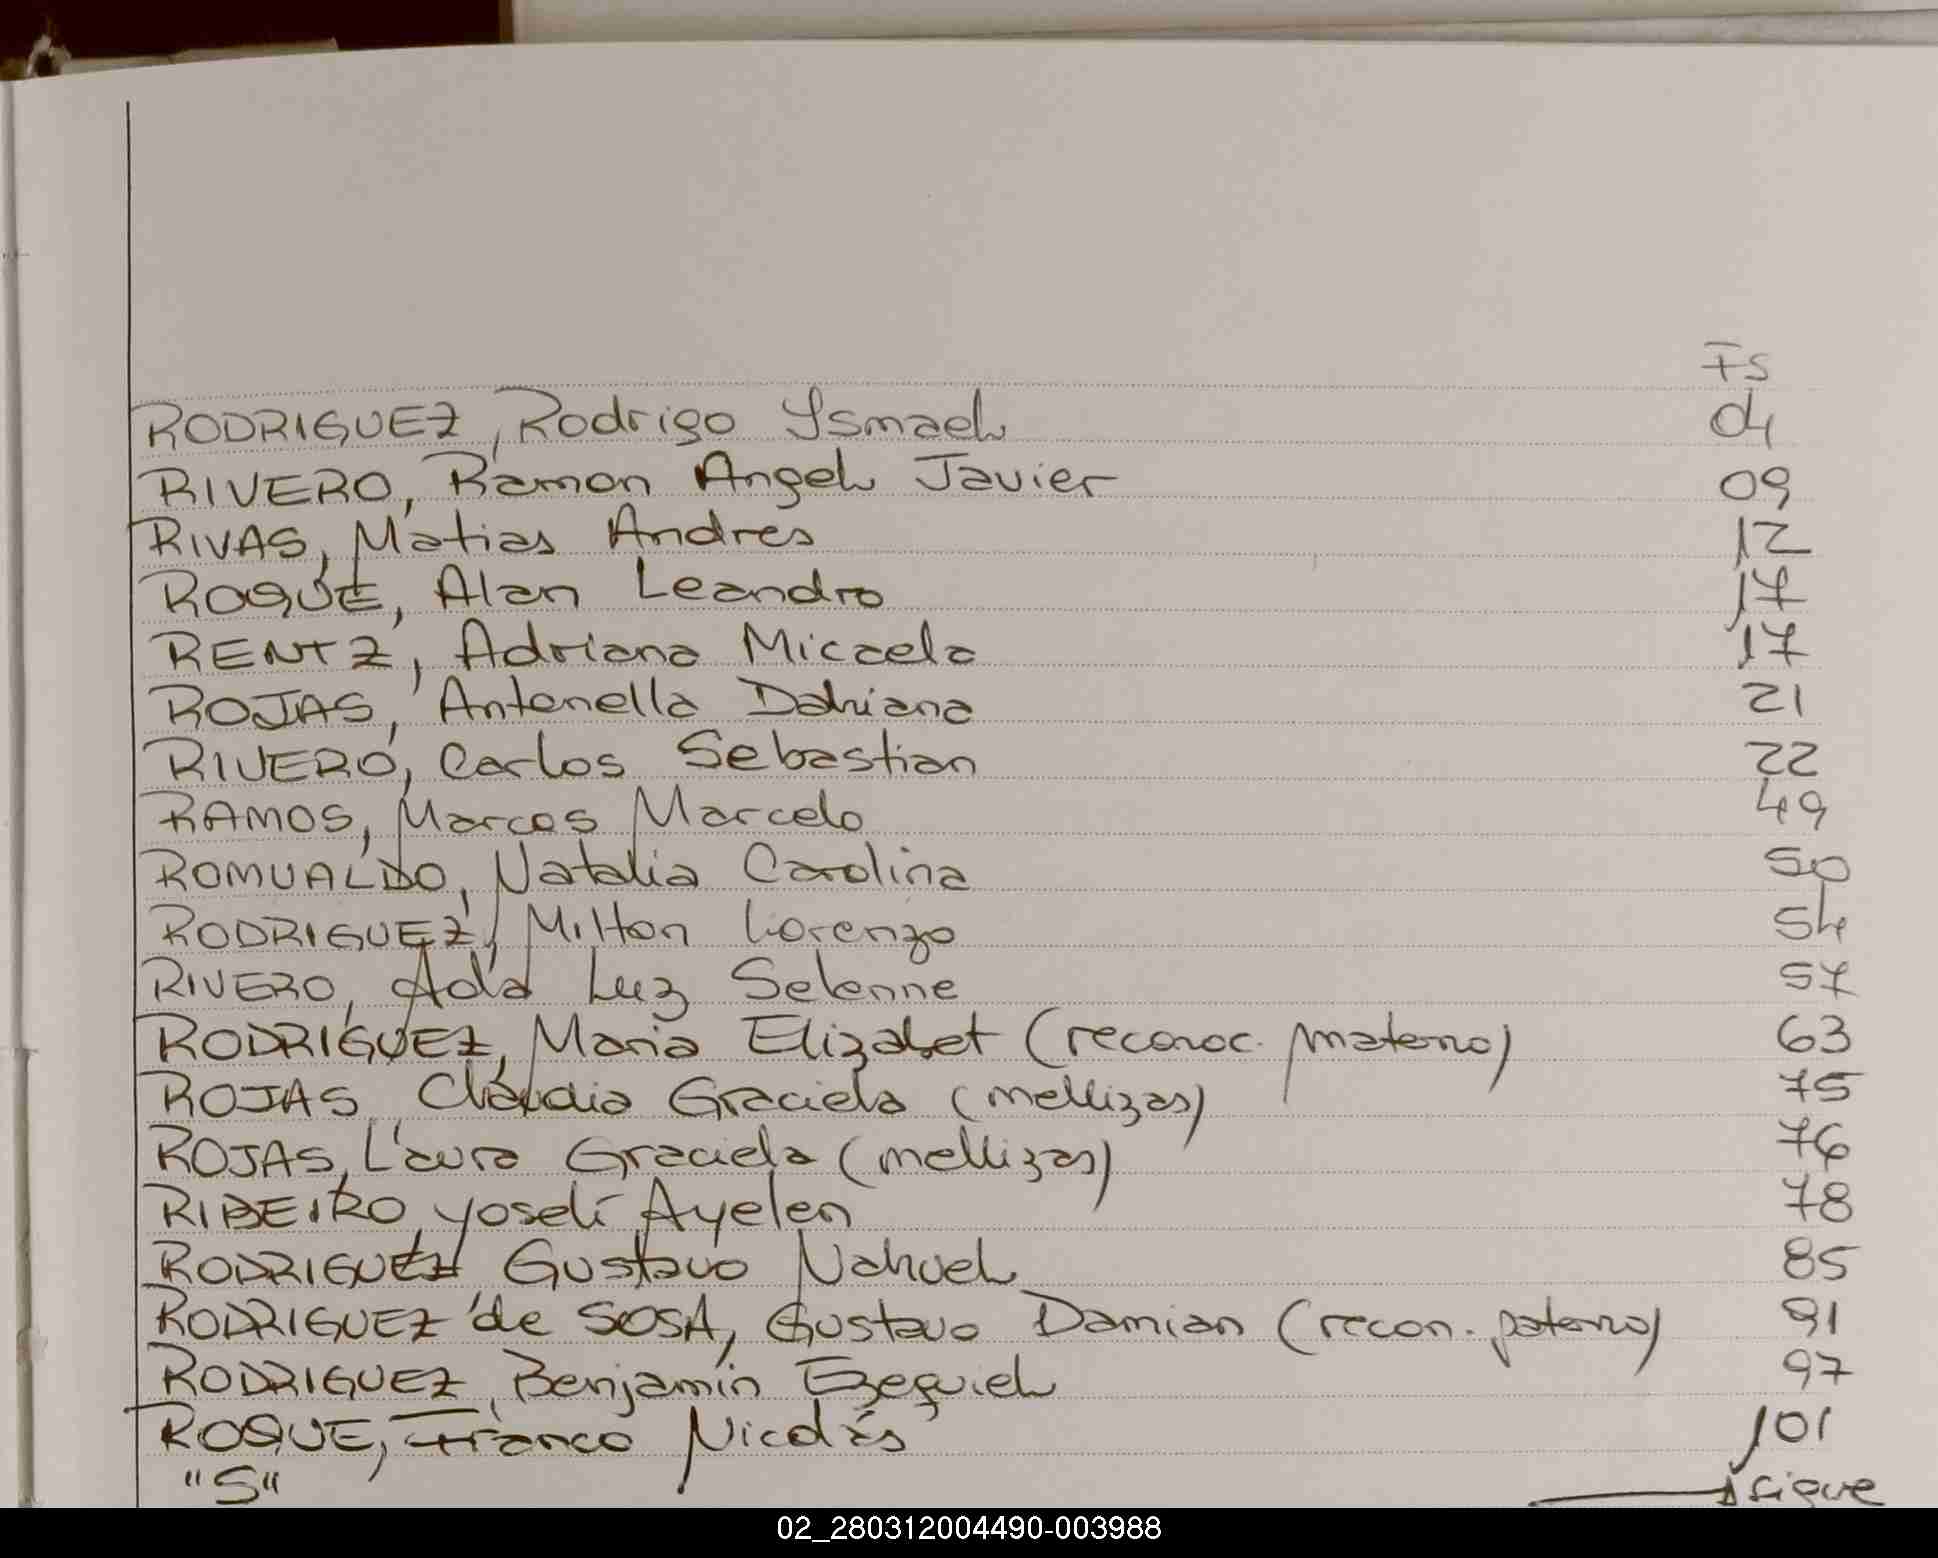 Fs
RODRIGUEZ, Rodrigo Ysmael 04
RIVERO, Ramon Angel Javier 09
RIVAS, Matias Andres 12
ROQUE, Alan Leandro 17
RENTZ, Adriana Micaela 17
ROJAS, Antonella Dahiana 21
RIVERO, Carlos Sebastian 22
RAMOS, Marcos Marcelo 49
ROMUALDO, Natalia Carolina 50
RODRIGUEZ, Milton Lorenzo 54
RIVERO, Ada Luz Selenne 57
RODRIGUEZ, Maria Elizabet (reconoc. materno) 63
ROJAS, Claudia Graciela (mellizas) 75
ROJAS, Laura Graciela (mellizas) 76
RIBEIRO, Yoselí Ayelen 78
RODRIGUEZ Gustavo Nahuel 85
RODRIGUEZ de SOSA, Gustavo Damian (recon. paterno) 91
RODRIGUEZ, Benjamín Ezequiel 97
ROQUE, Franco Nicolás 101
"S" sigue
02_280312004490-003988